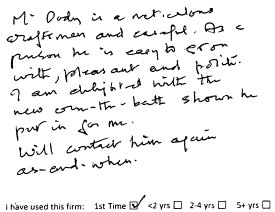 Mr Dody is a meticulous
craftsman and careful. As a
person he is easy to get on
with, pleasant and polite.
I am delighted with the
new over-the-bath shower he
put in for me.
Will contact him again
as-and-when.
I have used this firm: 1st Time ☑ <2 yrs ☐ 2-4 yrs ☐ 5+ yrs ☐